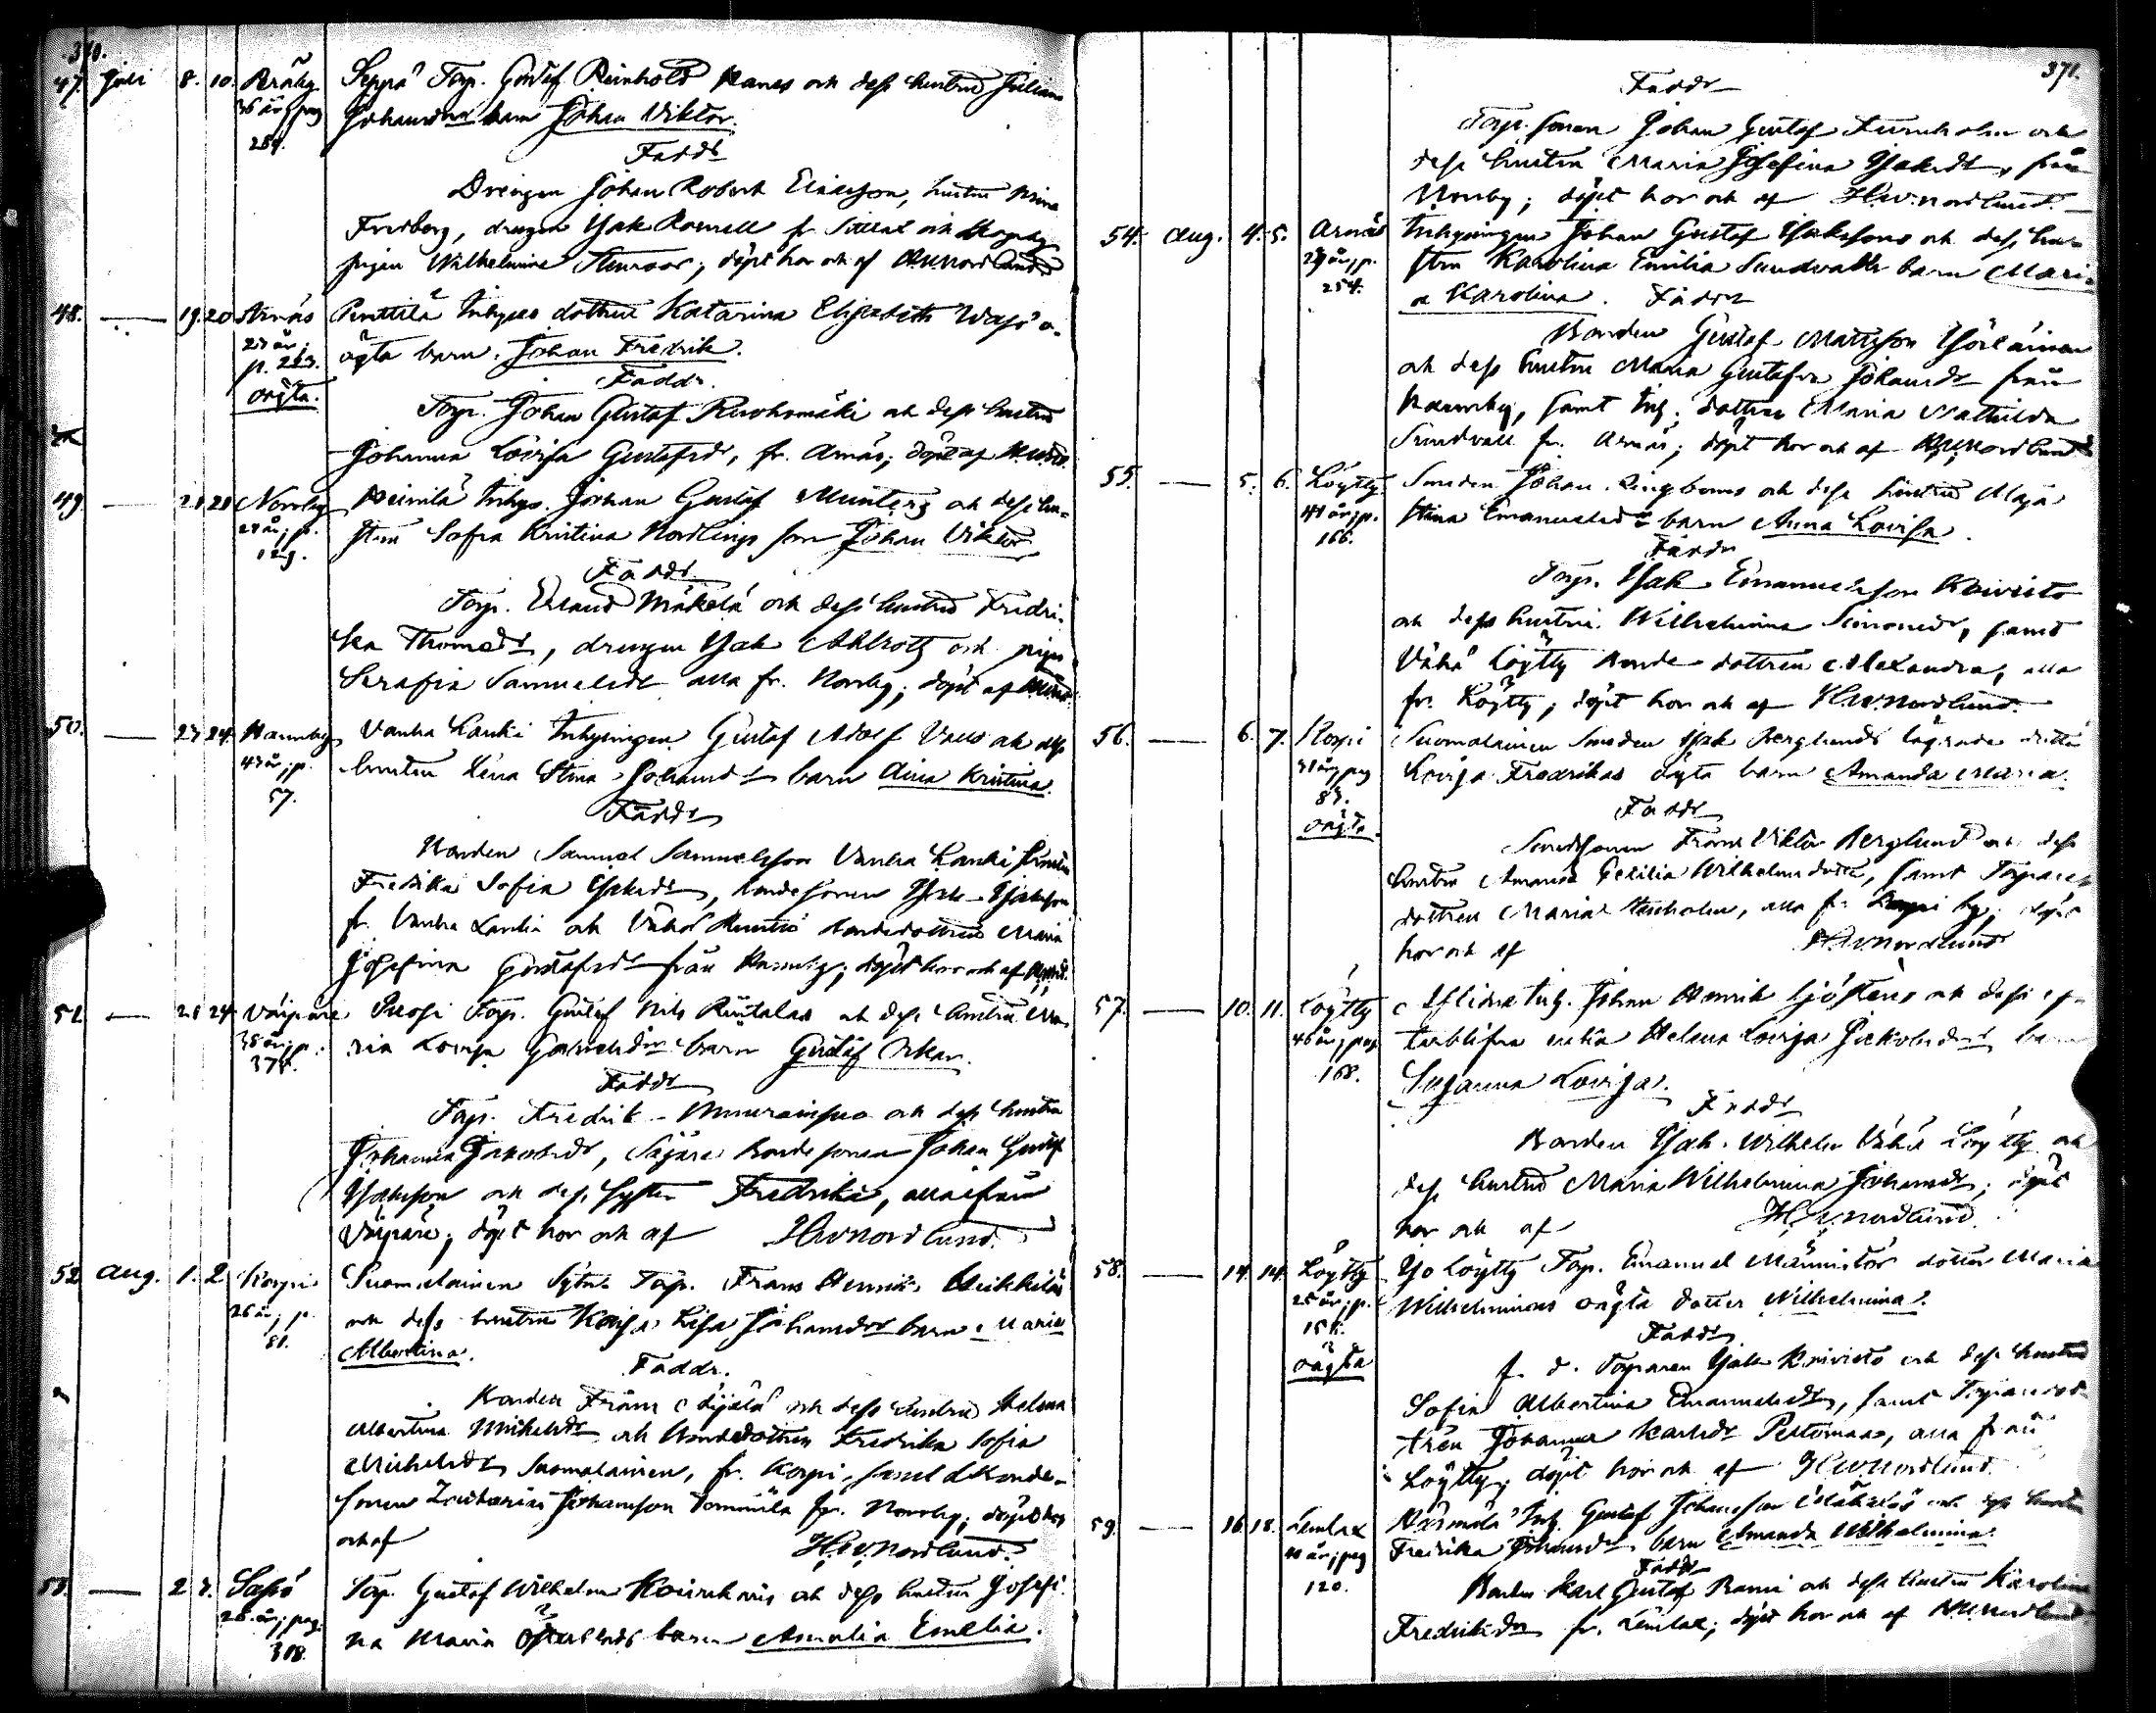 370.
47. Juli 8. 10. Bråby Seppä Torp. Gustaf Reinhold Hanes och dess hustru Juliana
36 år; pag Johansdrs barn Johan Viktor.
289.
Faddr
Drengen Johan Robert Eriksson, hustru Mina
Fredberg, drengen Isak Romell fr. och
pigan Wilhelmina Stenroos; döpt hos och af HWNordlund
48. — 19. 20 Arnäs Penttilä Inhyses dottren Katarina Elisabeth Wass' o-
27 år; ägta barn. Johan Fredrik.
p. 263.
oägta. Faddr.
Torp. Johan Gustaf Ruohomäki och dess hustru
Johanna Lovisa Gustafsdr, fr. Arnäs; döpt af HWNd.
49 — 21 23 Norrby Heinilä Inhys. Johan Gustaf Munters och dess hu-
24 år; p. stru Sofia Kristina Nordlings son Johan Viktor
129.
Faddr
Torp. Erland Mäkelä och dess hustru Fredri-
ka Thomasdr, drengen Isak Ahlrots och pigan
Serafia Samuelsdr alla fr. Norrby; döpt af HWNd.
50. — 23 24. Hannuby Vanha Lauki Inhysingen Gustaf Adolf Valls och dess
43 år; p. hustru Lena Stina Johansdrs barn Aina Kristina.
57.
Faddr
Bonden Samuel Samuelsson Vanha Lauki hustru
Fredrika Sofia Isaksdr, bondesonen Isak Isaksson
fr. Vanha Lauki och Vähä bondedottren Maria
Josefina Gustafsdr från Hannuby; döpt hos och af HWNd.
51. — 21 24. Väipäre Torp. Gustaf Nils Rintalas och dess hustru Ma-
38 år; p. ria Lovisa Gabrielsdrs barn Gustaf Oskar.
378.
Faddr
Torp. Fredrik Muurainsuo och dess hustru
Johanna Jakobsdr, Säjäre Bonde sonen Johan Gustaf
Isaksson och dess syster Fredrika, alla från
Väipäre; döpt hos och af HWNordlund.
52 Aug. 1. 2 Korpi Suomalainen Sytn. Torp. Frans Henrik Heikkiläs
26 år; p. och dess hustru Kajsa Lisa Johansdrs barn Maria
81. Albertina.
Faddr.
Bonden Frans Äijälä och dess hustru Helena
Albertina Mickelsdr och bondedottren Fredrika Sofia
Mickelsdr Suomalainen, fr. Korpi, samt Bonde-
sonen Zacharias Johansson Tommila fr. Norrby; döpt hos
och af HWNordlund.
53. — 2 3. Salsö Torp. Gustaf Wilhelm Koivukaris och dess hustru Josefi-
28 år; pag. na Maria barn Amalia Emelia.
308.
371.
Faddr
Torp. sonen Johan Gustaf Furuholm och
dess hustru Maria Josefina Isaksdr, från
Norrby; döpt hos och af HWNordlund.
54. Aug. 4. 5. Arnäs Inhysingen Johan Gustaf Isakssons och dess hu-
29 år; p. stru Karolina Emilia Sundvalls barn Mari-
254. a Karolina. Faddr
Bonden Gustaf Mattsson Yöläinen
och dess hustru Maria Gustafva Johansdr från
Hannuby, samt Inh. dottren Maria Mathilda
Sundvall fr. Arnäs; döpt hos och af HWNordlund
55. — 5. 6. Löytty Smeden Johan Ringboms och dess hustru Maja
41 år; p. Stina Emanuelsdrs barn Anna Lovisa.
166.
Faddr
Torp. Isak Emanuelsson Koivisto
och dess hustru Wilhelmina Simonsdr, samt
Vähä Löytty Bonde dottren Alexandra, alla
fr. Löytty; döpt hos och af HWNordlund.
56. — 6. 7. Korpi Suomalainen Smeden Isak Berglunds dotter
31 år; pag Lovisa Fredrikas oägta barn Amanda Maria.
83.
oägta Faddr
Smedssonen Frans Viktor Berglund och dess
hustru Amanda Cecilia Wilhelmsdotter, samt Torpare
dottren Maria Stenholm, alla fr. Korpi by; döpt
hos och af HWNordlund
57. — 10. 11. Löytty Inh. Johan Henrik Sjöstens och dess ef-
46 år; pag terblifna enka Helena Lovisa Jakobsdrs barn
168. Susanna Lovisa.
Faddr
Bonden Isak Wilhelm Vähä Löytty och
dess hustru Maria Wilhelmina Johansdr; döpt
hos och af HWNordlund.
58. — 14. 14. Löytty Yso Löytty Torp. Emanuel Männistös dotter Maria
25 år; p. Wilhelminas oägta dotter Wilhelmina.
oägta Faddr
f. d. Torparen Isak Koivisto och dess hustru
Sofia Albertina Emanuelsdr, samt Torparedot-
tren Johanna Karlsdr Peltomaa, alla från
Löytty; döpt hos och af HWNordlund.
59. — 16. 18. Lemlax Inh. Gustaf Johansson och dess hustru
40 år; pag Fredrika Johansdrs barn Amanda Wilhelmina.
120. Faddr
Bonden Karl Gustaf Rami och dess hustru Karolina
Fredriksdr fr. Lemlax; döpt hos och af HWNordlund